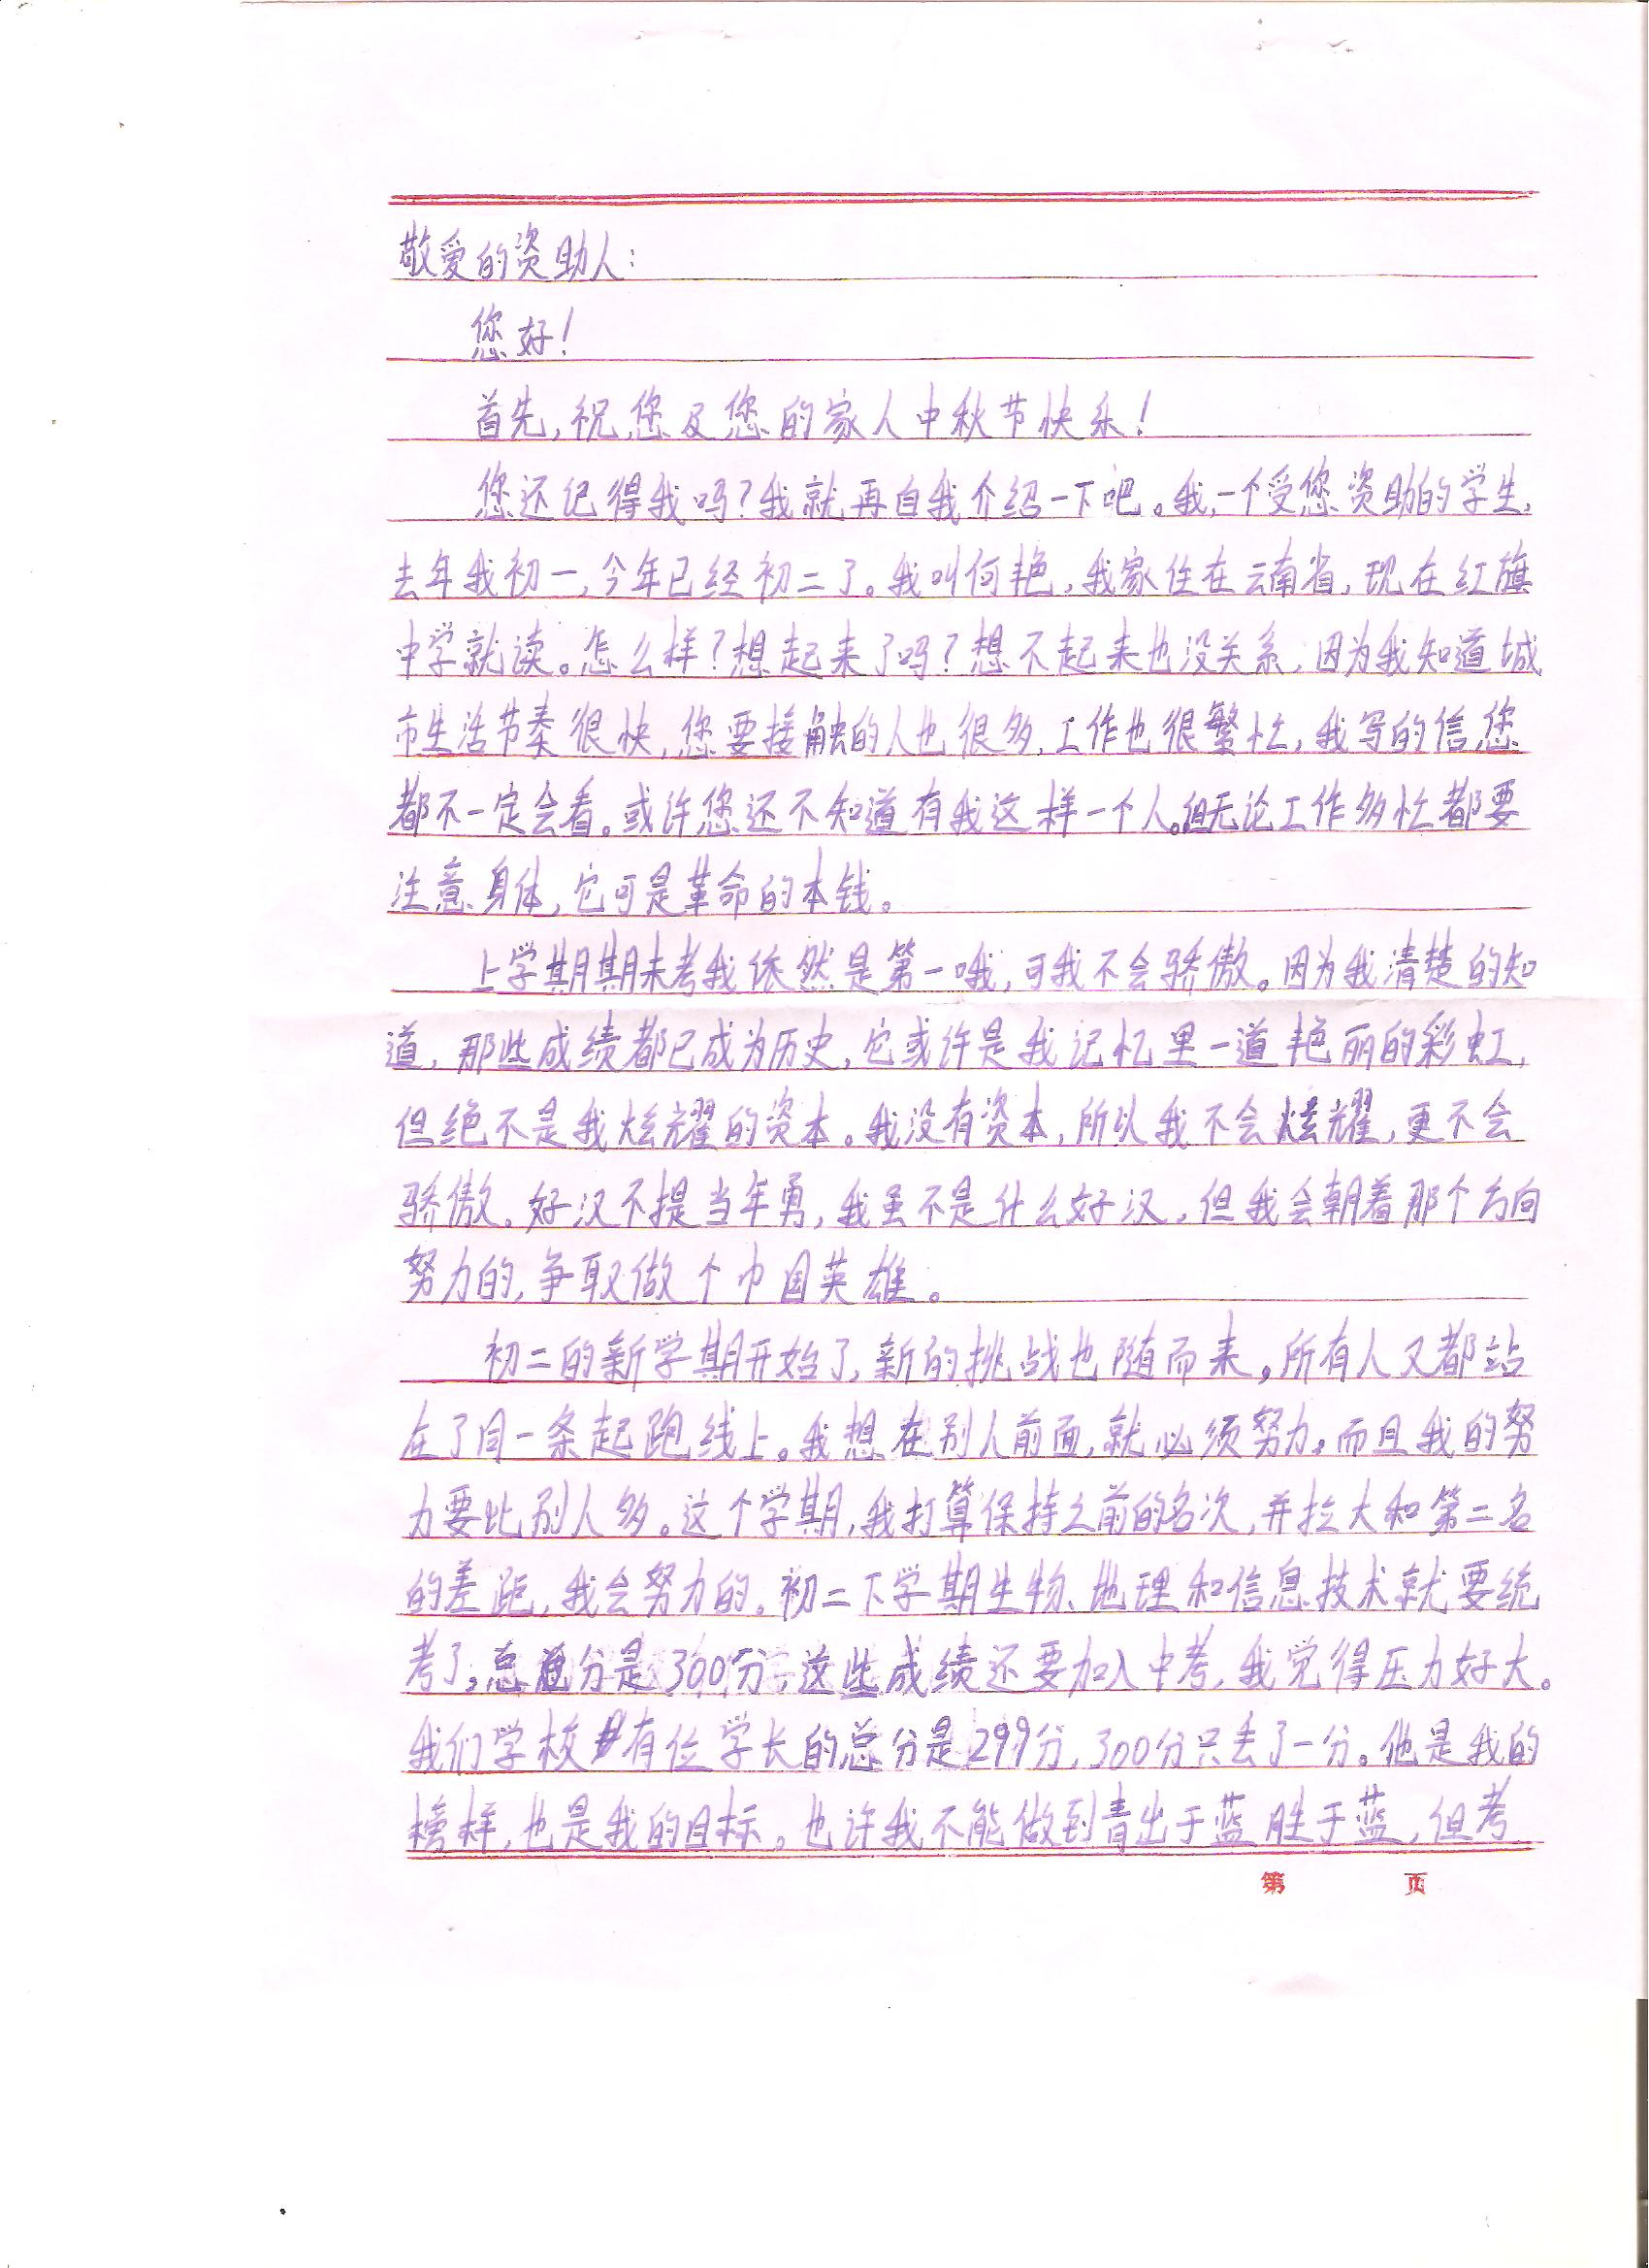 敬爱的资助人:
您好!
首先,祝您及您的家人中秋节快乐!
您还记得我吗?我就再自我介绍一下吧。我,一个受您资助的学生,
去年我初一,今年已经初二了。我叫何艳,我家住在云南省,现在红旗
中学就读。怎么样?想起来了吗?想不起来也没关系,因为我知道城
市生活节奏很快,您要接触的人也很多,工作也很繁忙,我写的信您
都不一定会看。或许您还不知道有我这样一个人。但无论工作多忙都要
注意身体,它可是革命的本钱。
上学期期末考我依然是第一哦,可我不会骄傲。因为我清楚的知
道,那些成绩都已成为历史,它或许是我记忆里一道艳丽的彩虹,
但绝不是我炫耀的资本。我没有资本,所以我不会炫耀,更不会
骄傲。好汉不提当年勇,我虽不是什么好汉,但我会朝着那个方向
努力的,争取做个巾国英雄。
初二的新学期开始了,新的挑战也随而来。所有人又都站
在了同一条起跑线上。我想在别人前面,就必须努力。而且我的努
力要比别人多。这个学期,我打算保持之前的名次,并拉大和第二名
的差距,我会努力的。初二下学期生物、地理和信息技术就要统
考了。总分是300分,这些成绩还要加入中考,我觉得压力好大。
我们学校有位学长的总分是299分,300分只丢了一分。他是我的
榜样,也是我的目标。也许我不能做到青出于蓝胜于蓝,但考
第 页